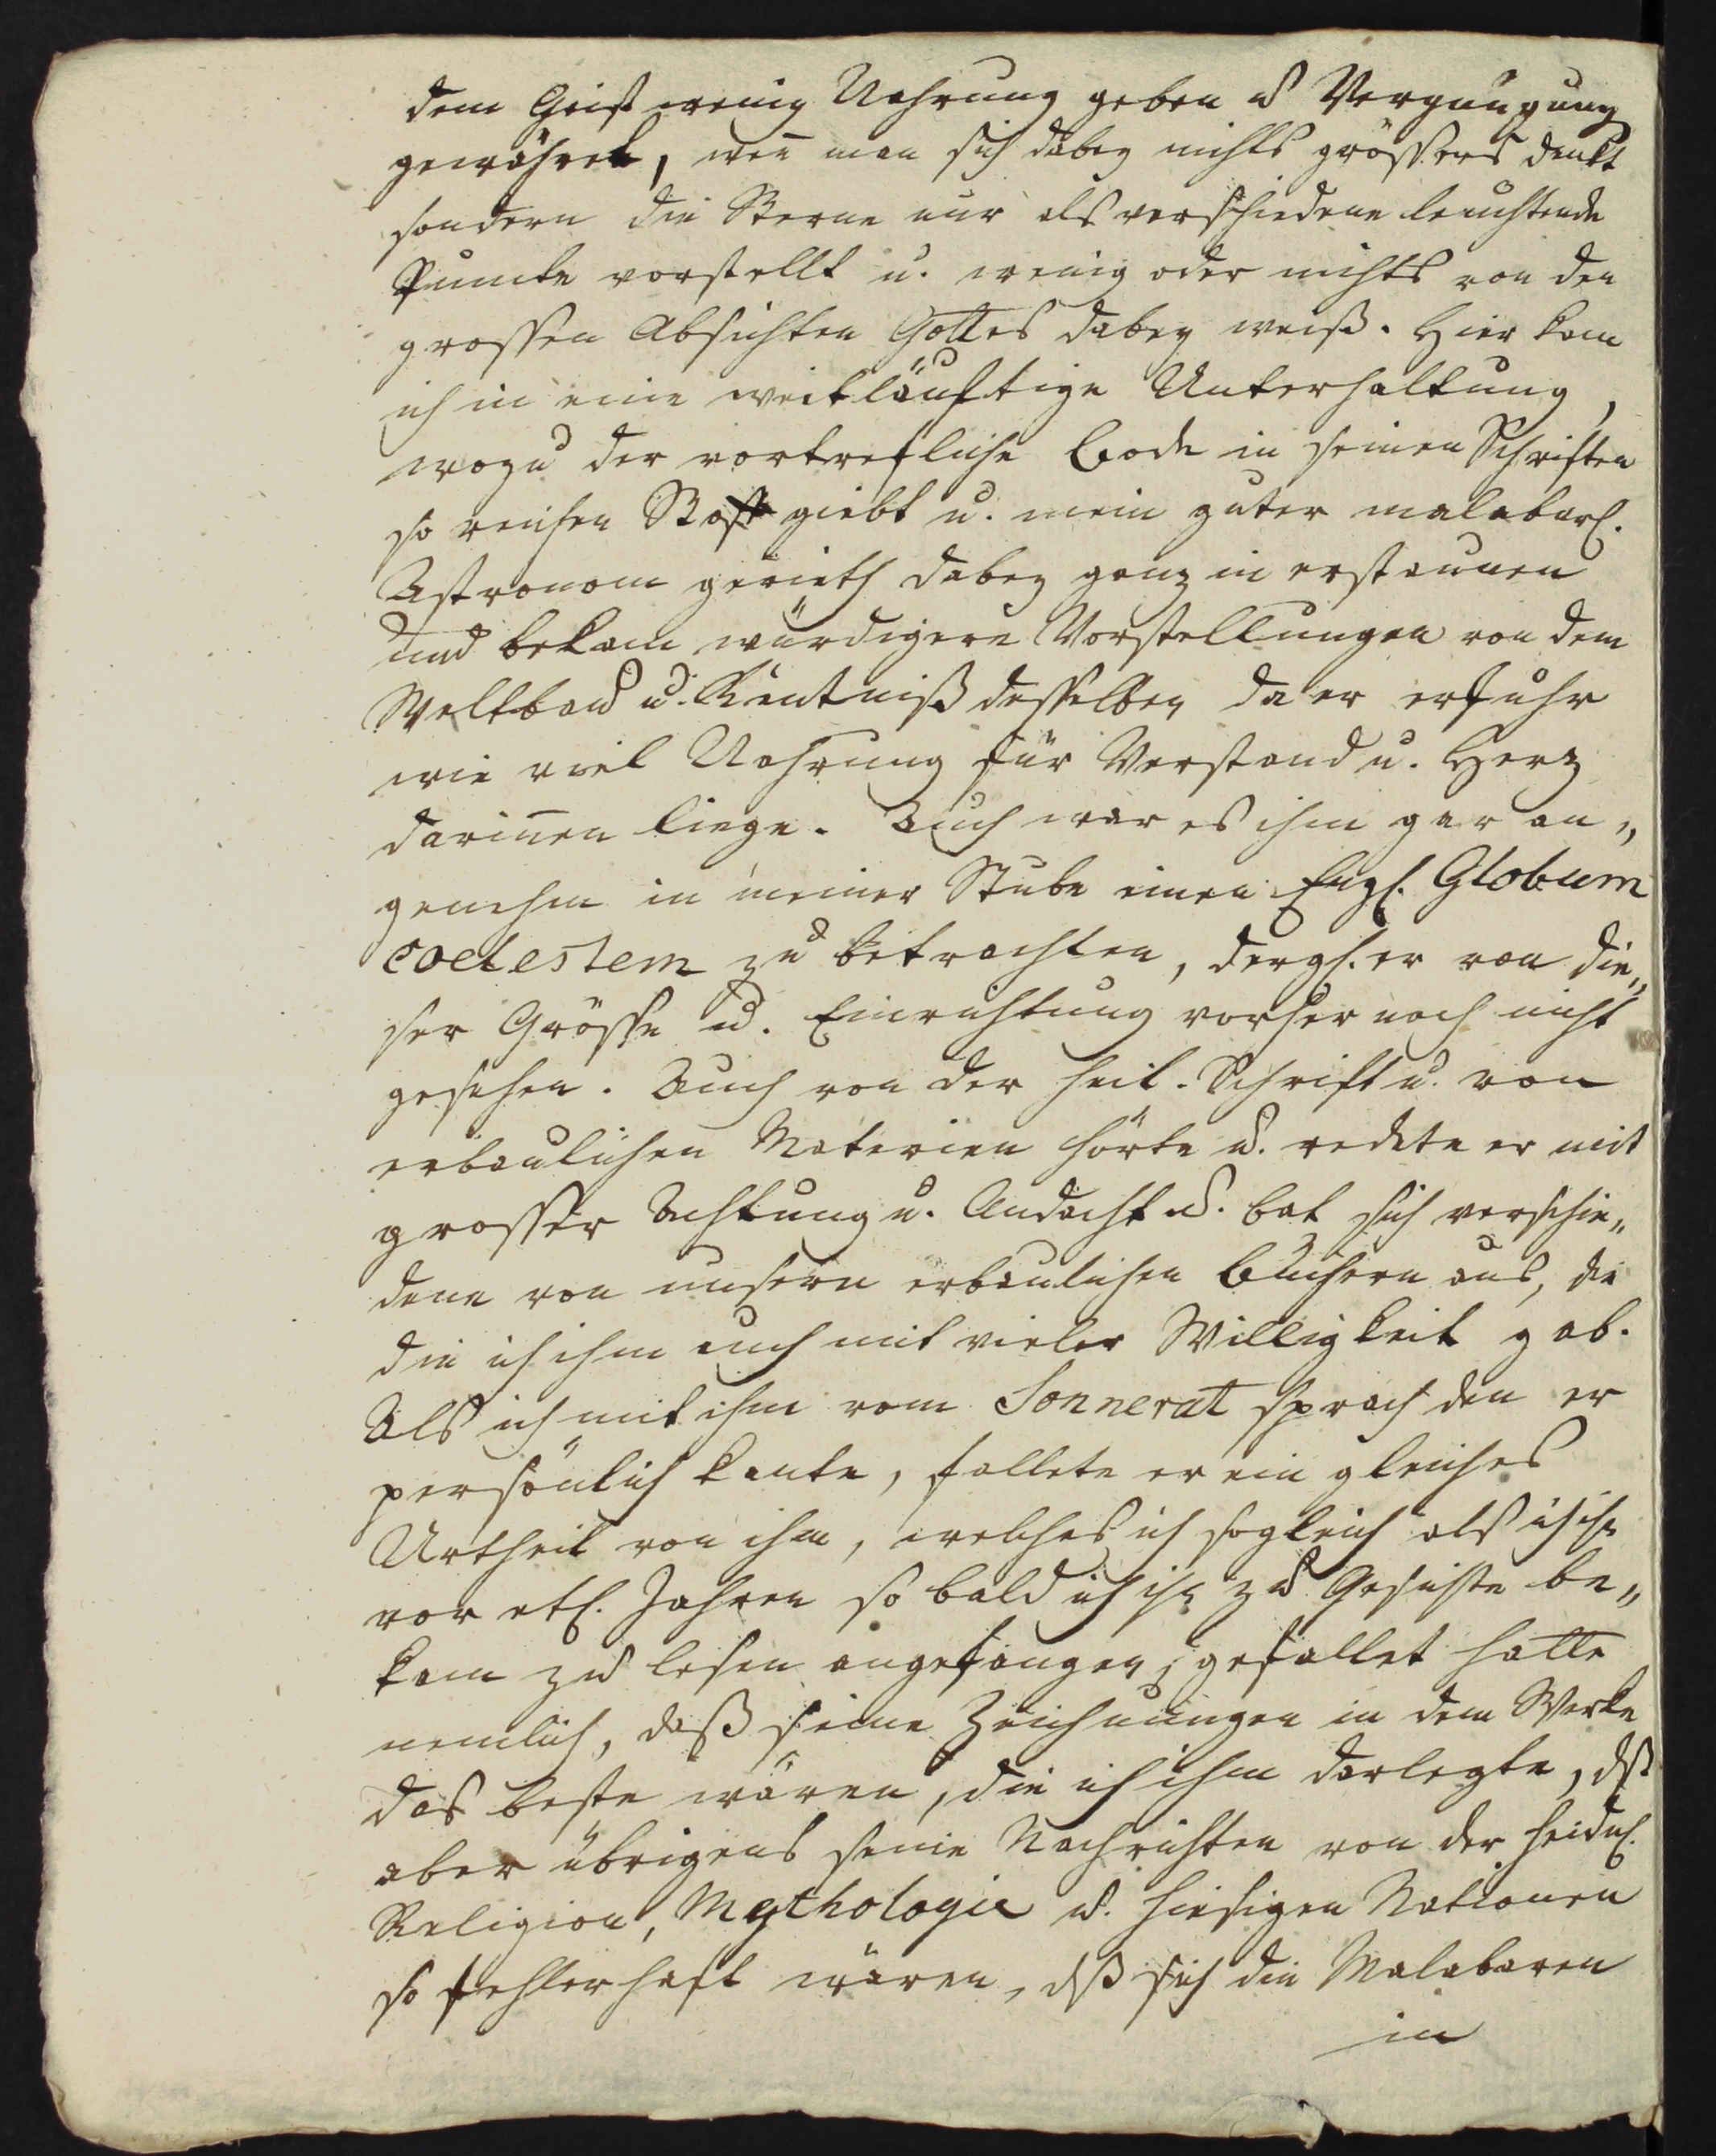 dem Geist wenig Nahrung geben u Vergnügung
gewähret, weñ man sich dabey nichts grössers denkt
sondern die Sterne nur als verschiedene leuchtende
Puncte vorstellt u. wenig oder nichts von den
grossen Absichten Gottes dabey weiß. Hier kam
ich in eine weitläuftige Unterhaltung,
wozu der vortrefliche Bode in seinen Schriften
so reichen Stoff giebt u. mein guter malabarl.
Astronom gerieth dabey ganz in erstaunen
und bekam würdigere Vorstellungen von dem
Weltbau u. Kentniß desselben da er erfuhr
wie viel Nahrung für Verstand u. Herz
dariñen liege. Auch war es ihm gar an„
genehm in meiner Stube einen Engl. Globum
coelestem zu betrachten, dergl. er von die„
ser Grösse u. Einrichtung vorher noch nicht
gesehen. Auch von der heil. Schrift u. von
erbaulichen Materien hörte u. redete er mit
grosser Achtung u. Andacht u. bat sich verschie„
dene von unsern erbaulichen Büchern aus, die
die ich ihm auch mit vieler Willigkeit gab.
Als ich mit ihm vom Sonnerat sprach den er
persönlich kante, fällete er ein gleiches
Urtheil von ihm, welches ich sogleich als ich ihn
vor etl. Jahren so bald ich ihn zu Gesichte be„
kam zu lesen angefangen, gefället hatte
nemlich, daß seine Zeichnungen in dem Werke
das beste wären, die ich ihm darlegte, dß
aber übrigens seine Nachrichten von der heidnl.
Religion, Mythologie u. hiesigen Nationen
so fehlerhaft wären, dß sich die Malabaren
in